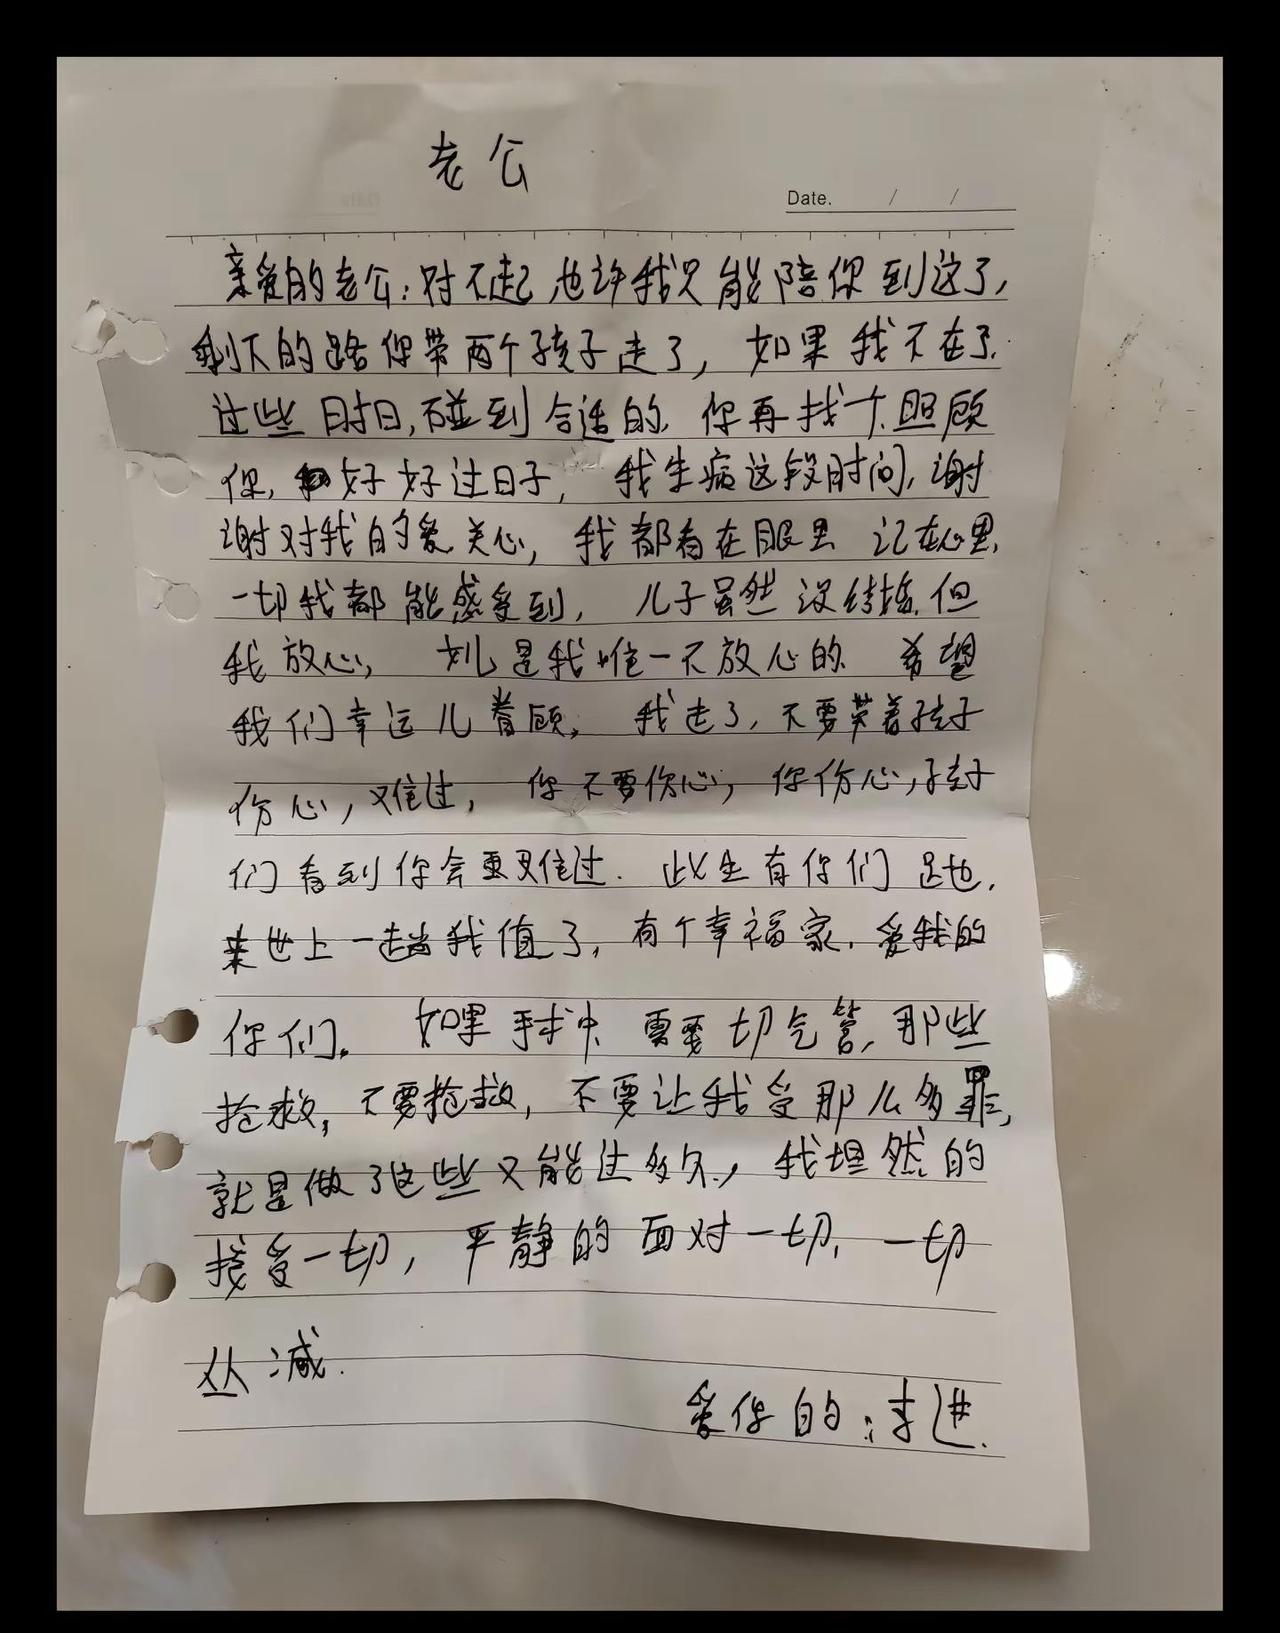 老公
Date. / /
亲爱的老公：对不起，也许我只能陪你到这了，
剩下的路你带两个孩子走了，如果我不在了.
过些时日，碰到合适的，你再找个照顾
你，好好过日子，我生病这段时间，谢
谢对我的爱，关心，我都看在眼里 记在心里，
一切我都能感受到，儿子虽然没结婚，但
我放心，女儿是我唯一不放心的 希望
我们幸运儿眷顾，我走了，不要带着孩子
伤心，难过，你不要伤心，你伤心，孩子
们看到你会更难过. 此生有你们足也，
来世上一趟我值了，有个幸福家，爱我的
你们。如果手术中需要切气管，那些
抢救，不要抢救，不要让我受那么多罪，
就是做了这些又能过多久，我坦然的
接受一切，平静的面对一切，一切
从减.
爱你的：李进.